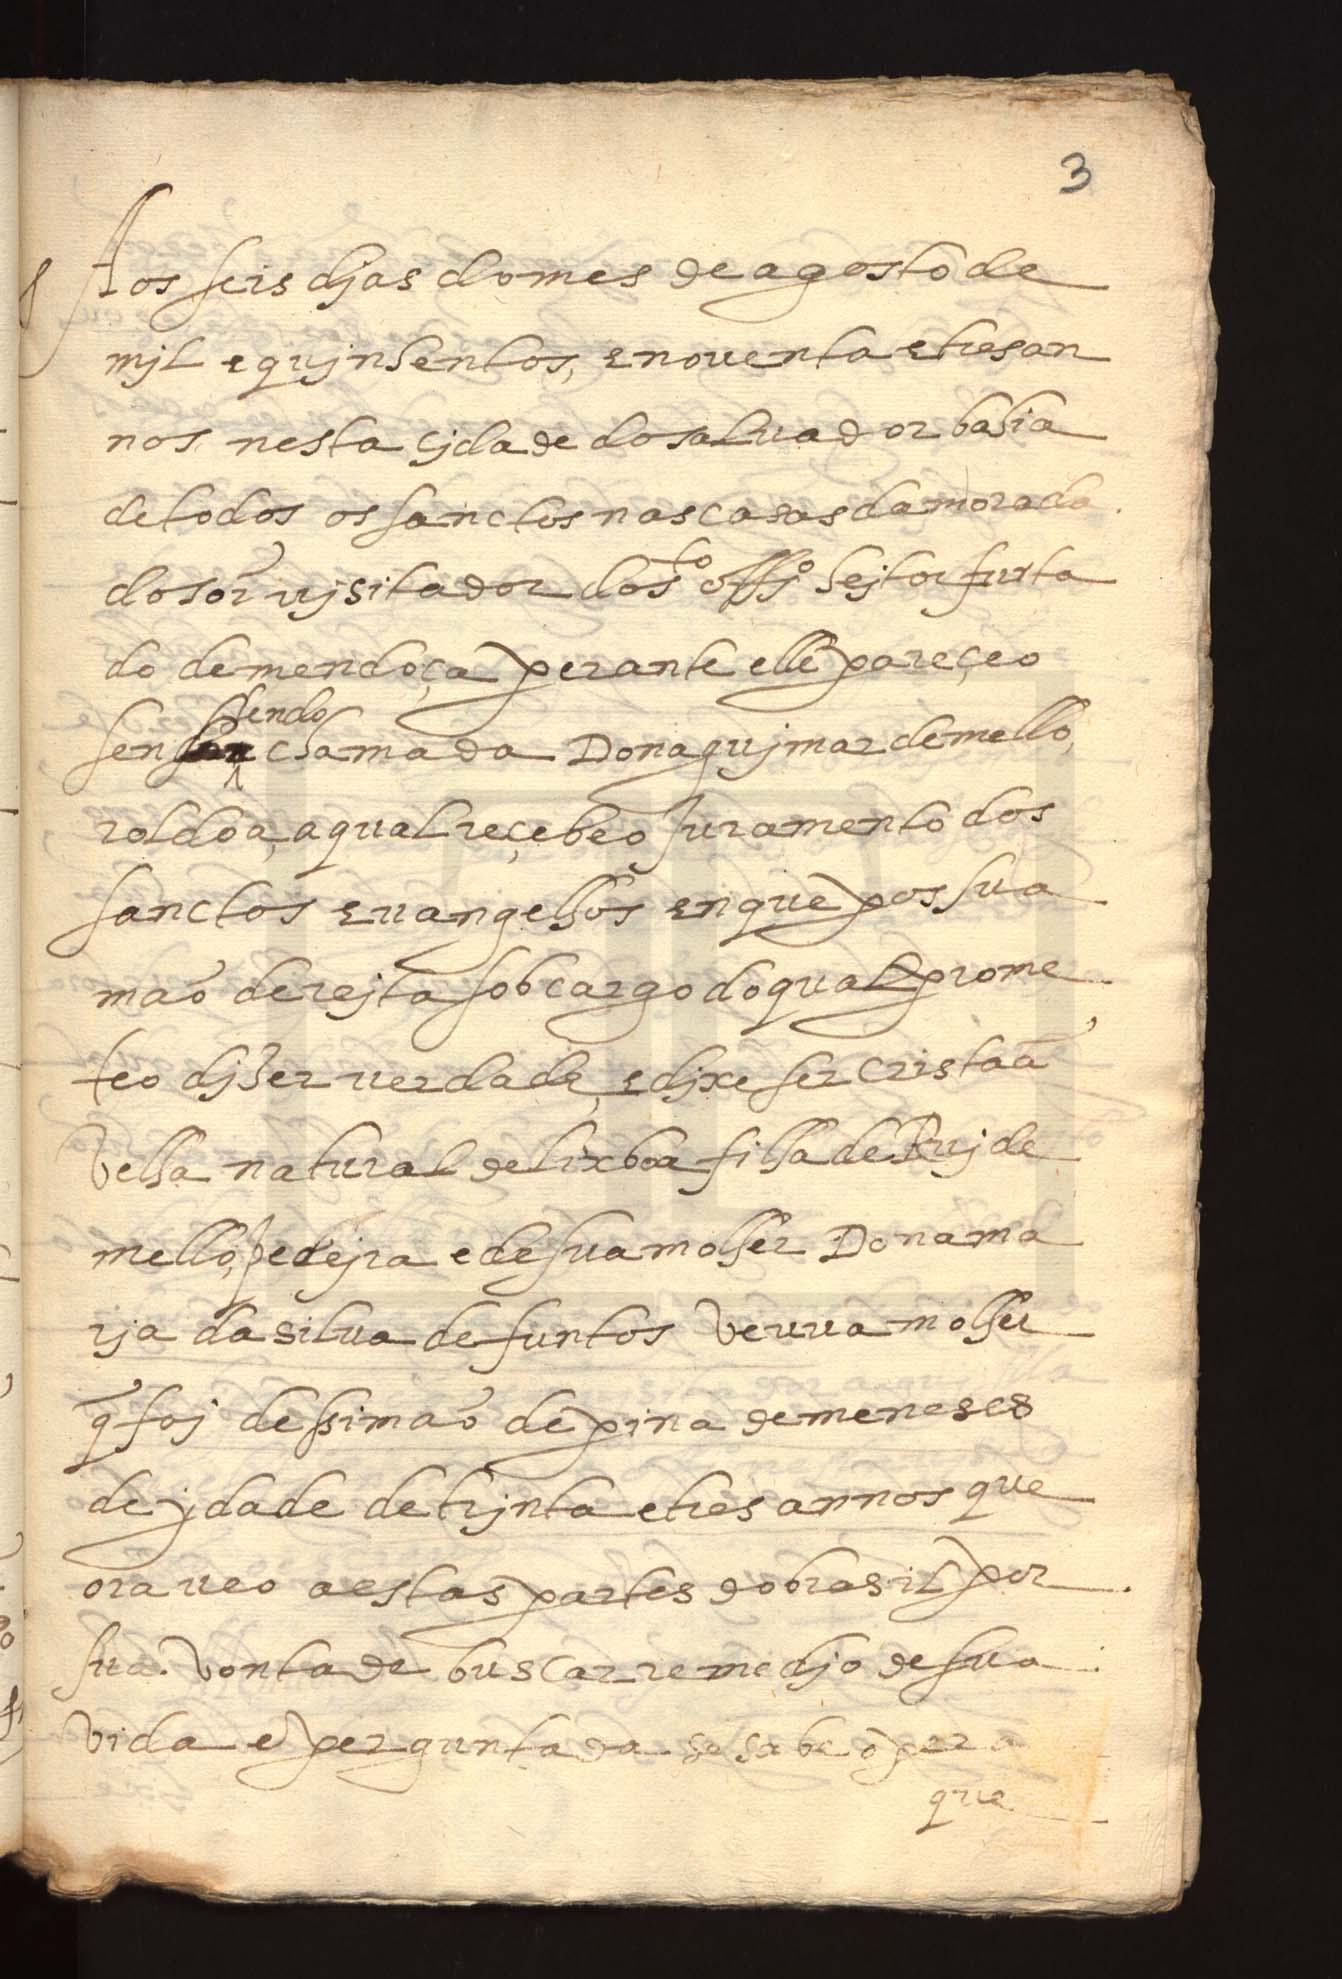 3
Aos seis djas do mes de agosto de
mjl e qujnhentos, e noventa e tres an
nos nesta çjdade do saluador bahia
de todos os sanctos nas casas da morada
do sõr vjsitador do sto offjo hejtor furta
do de mendoça perante elle pareçeo
sendo
sen chamada Dona gujmar de mello,
roldoa, a qual reçebeo juramento dos
sanctos euangelhos en que pos sua
mão derejta sob cargo do qual prome
teo djzer verdade, e djxe ser cristaã
velha natural de lixboa filha de Ruj de
mello, e de sua molher Dona ma
rja da silua defuntos veuua molher
q̃ foj de ssimaõ de pina de meneses
de jdade de trjnta e tres annos que
ora veo a estas partes do brasil por
sua vontade buscar remedjo de sua
vida e perguntada se sabe o pera
que